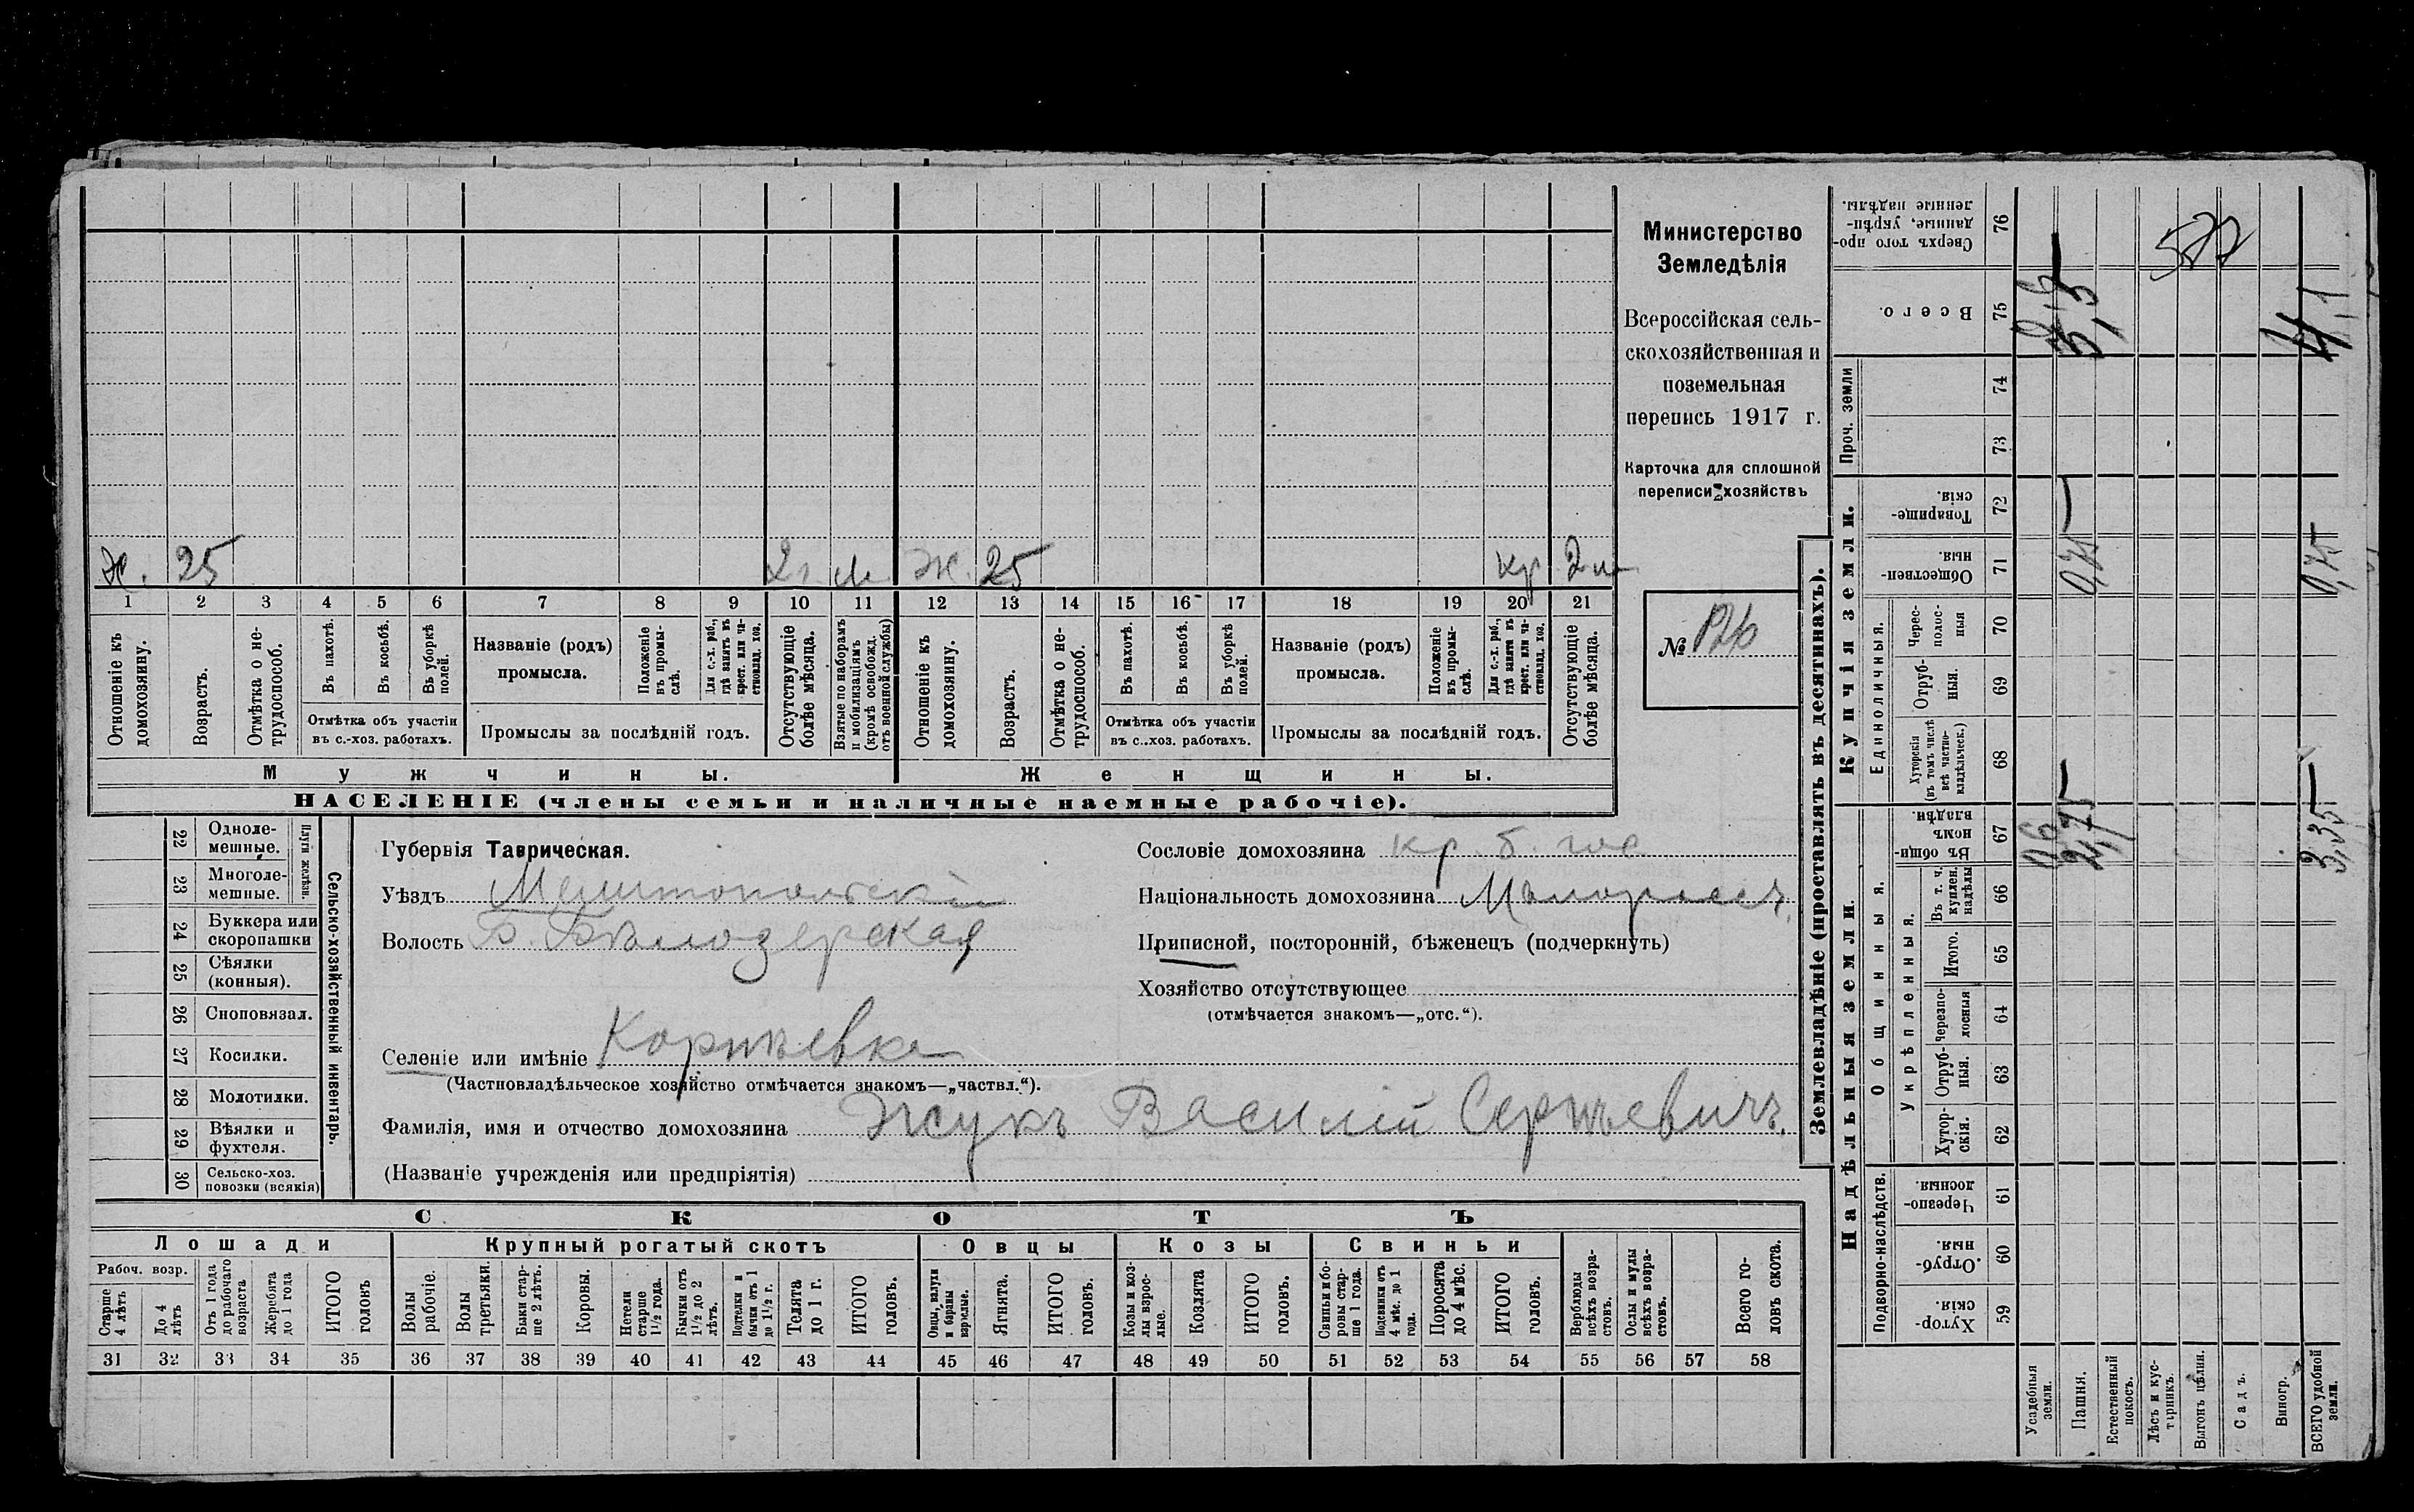 Министерство
Земледѣлія
Всероссійская сель-
скохозяйственная и
поземельная
перепись 1917 г.
Карточка для сплошной
переписи хозяйствъ
№ 126
Х. 25 2 г. м Ж. 25 кр 2 м
1 2 3 4 5 6 7 8 9 10 11 12 13 14 15 16 17 18 19 20 21
Отношеніе къ домохозяину.
Возрастъ.
Отмѣтка о не-трудоспособ.
Въ пахотѣ.
Въ косьбѣ.
Въ уборкѣ полей.
Отмѣтка объ участіи
въ с.-хоз. работахъ.
Названіе (родъ)
промысла.
Положеніе въ промы-слѣ.
Для с.-х. раб., гдѣ занятъ въ крест. или ча-стновлад. хоз.
Промыслы за послѣдній годъ.
Отсутствующіе болѣе мѣсяца.
Взятые по наборамъ и мобилизаціямъ (кромѣ освобожд. отъ военной службы)
Отношеніе къ домохозяину.
Возрастъ.
Отмѣтка о не-трудоспособ.
Въ пахотѣ.
Въ косьбѣ.
Въ уборкѣ полей.
Отмѣтка объ участіи
въ с.-хоз. работахъ.
Названіе (родъ)
промысла.
Положеніе въ промы-слѣ.
Для с.-х. раб., гдѣ занята въ крест. или ча-стновлад. хоз.
Промыслы за послѣдній годъ.
Отсутствующіе болѣе мѣсяца.
Мужчины. Женщины.
НАСЕЛЕНІЕ (члены семьи и наличные наемные рабочіе).
22 Одноле-мешные.
23 Многоле-мешные.
Плуги желѣзн.
24 Буккера или скоропашки
25 Сѣялки (конныя).
26 Сноповязал.
27 Косилки.
28 Молотилки.
29 Вѣялки и фухтеля.
30 Сельско-хоз. повозки (всякія)
Сельско-хозяйственный инвентарь.
Губернія Таврическая.
Уѣздъ Мелитопольскій
Волость Б. Бѣлозерская
Селеніе или имѣніе Корнѣевка
(Частновладѣльческое хозяйство отмѣчается знакомъ—„частвл.“).
Фамилія, имя и отчество домохозяина Жукъ Василій Сергѣевичъ
(Названіе учрежденія или предпріятія)
Сословіе домохозяина кр. б. гос
Національность домохозяина Малороссъ.
Приписной, посторонній, бѣженецъ (подчеркнуть)
Хозяйство отсутствующее
(отмѣчается знакомъ—„отс.“).
СКОТЪ
Лошади Крупный рогатый скотъ Овцы Козы Свиньи
Рабоч. возр.
Старше 4 лѣтъ
До 4 лѣтъ
Отъ 1 года до рабочаго возраста
Жеребята до 1 года
ИТОГО головъ
Волы рабочіе.
Волы третьяки.
Быки стар-ше 2 лѣтъ.
Коровы.
Нетели старше 1½ года.
Бычки отъ 1½ до 2 лѣтъ.
Подтелки и бычки отъ 1 до 1½ г.
Телята до 1 г.
ИТОГО головъ.
Овцы, валухи и бараны взрослые.
Ягнята.
ИТОГО головъ.
Козы и коз-лы взрос-лые.
Козлята
ИТОГО головъ.
Свиньи и бо-ровы стар-ше 1 года.
Подсвинки отъ 4 мѣс. до 1 года.
Поросята до 4 мѣс.
ИТОГО головъ.
Верблюды всѣхъ возра-стовъ.
Ослы и мулы всѣхъ возра-стовъ.
Всего го-ловъ скота.
31 32 33 34 35 36 37 38 39 40 41 42 43 44 45 46 47 48 49 50 51 52 53 54 55 56 57 58
Землевладѣніе (проставлять въ десятинахъ).
Надѣльныя земли. Купчія земли. Проч. земли
Подворно-наслѣдств. Общинныя. Единоличныя.
Укрѣпленныя.
59 Хутор-скія.
60 Отруб-ныя.
61 Черезпо-лосныя.
62 Хутор-скія.
63 Отруб-ныя.
64 Черезпо-лосныя
65 Итого.
66 Въ т. ч. куплен. надѣлы
67 Въ общин-номъ владѣн.
68 Хуторскія (въ томъ числѣ всѣ частно-владѣльческ.)
69 Отруб-ныя.
70 Черес-полос-ныя
71 Обществен-ныя.
72 Товарище-скія.
73
74
75 Всего.
76 Сверхъ того про-данные, укрѣп-ленные надѣлы.
Усадебныя земли. 0,6
Пашня. 2,75 0,75 3,5
Естественный покосъ.
Лѣсъ и кус-тарникъ.
Выгонъ цѣлин.
Садъ.
Виногр.
ВСЕГО удобной земли. 3,35 0,75 4,1